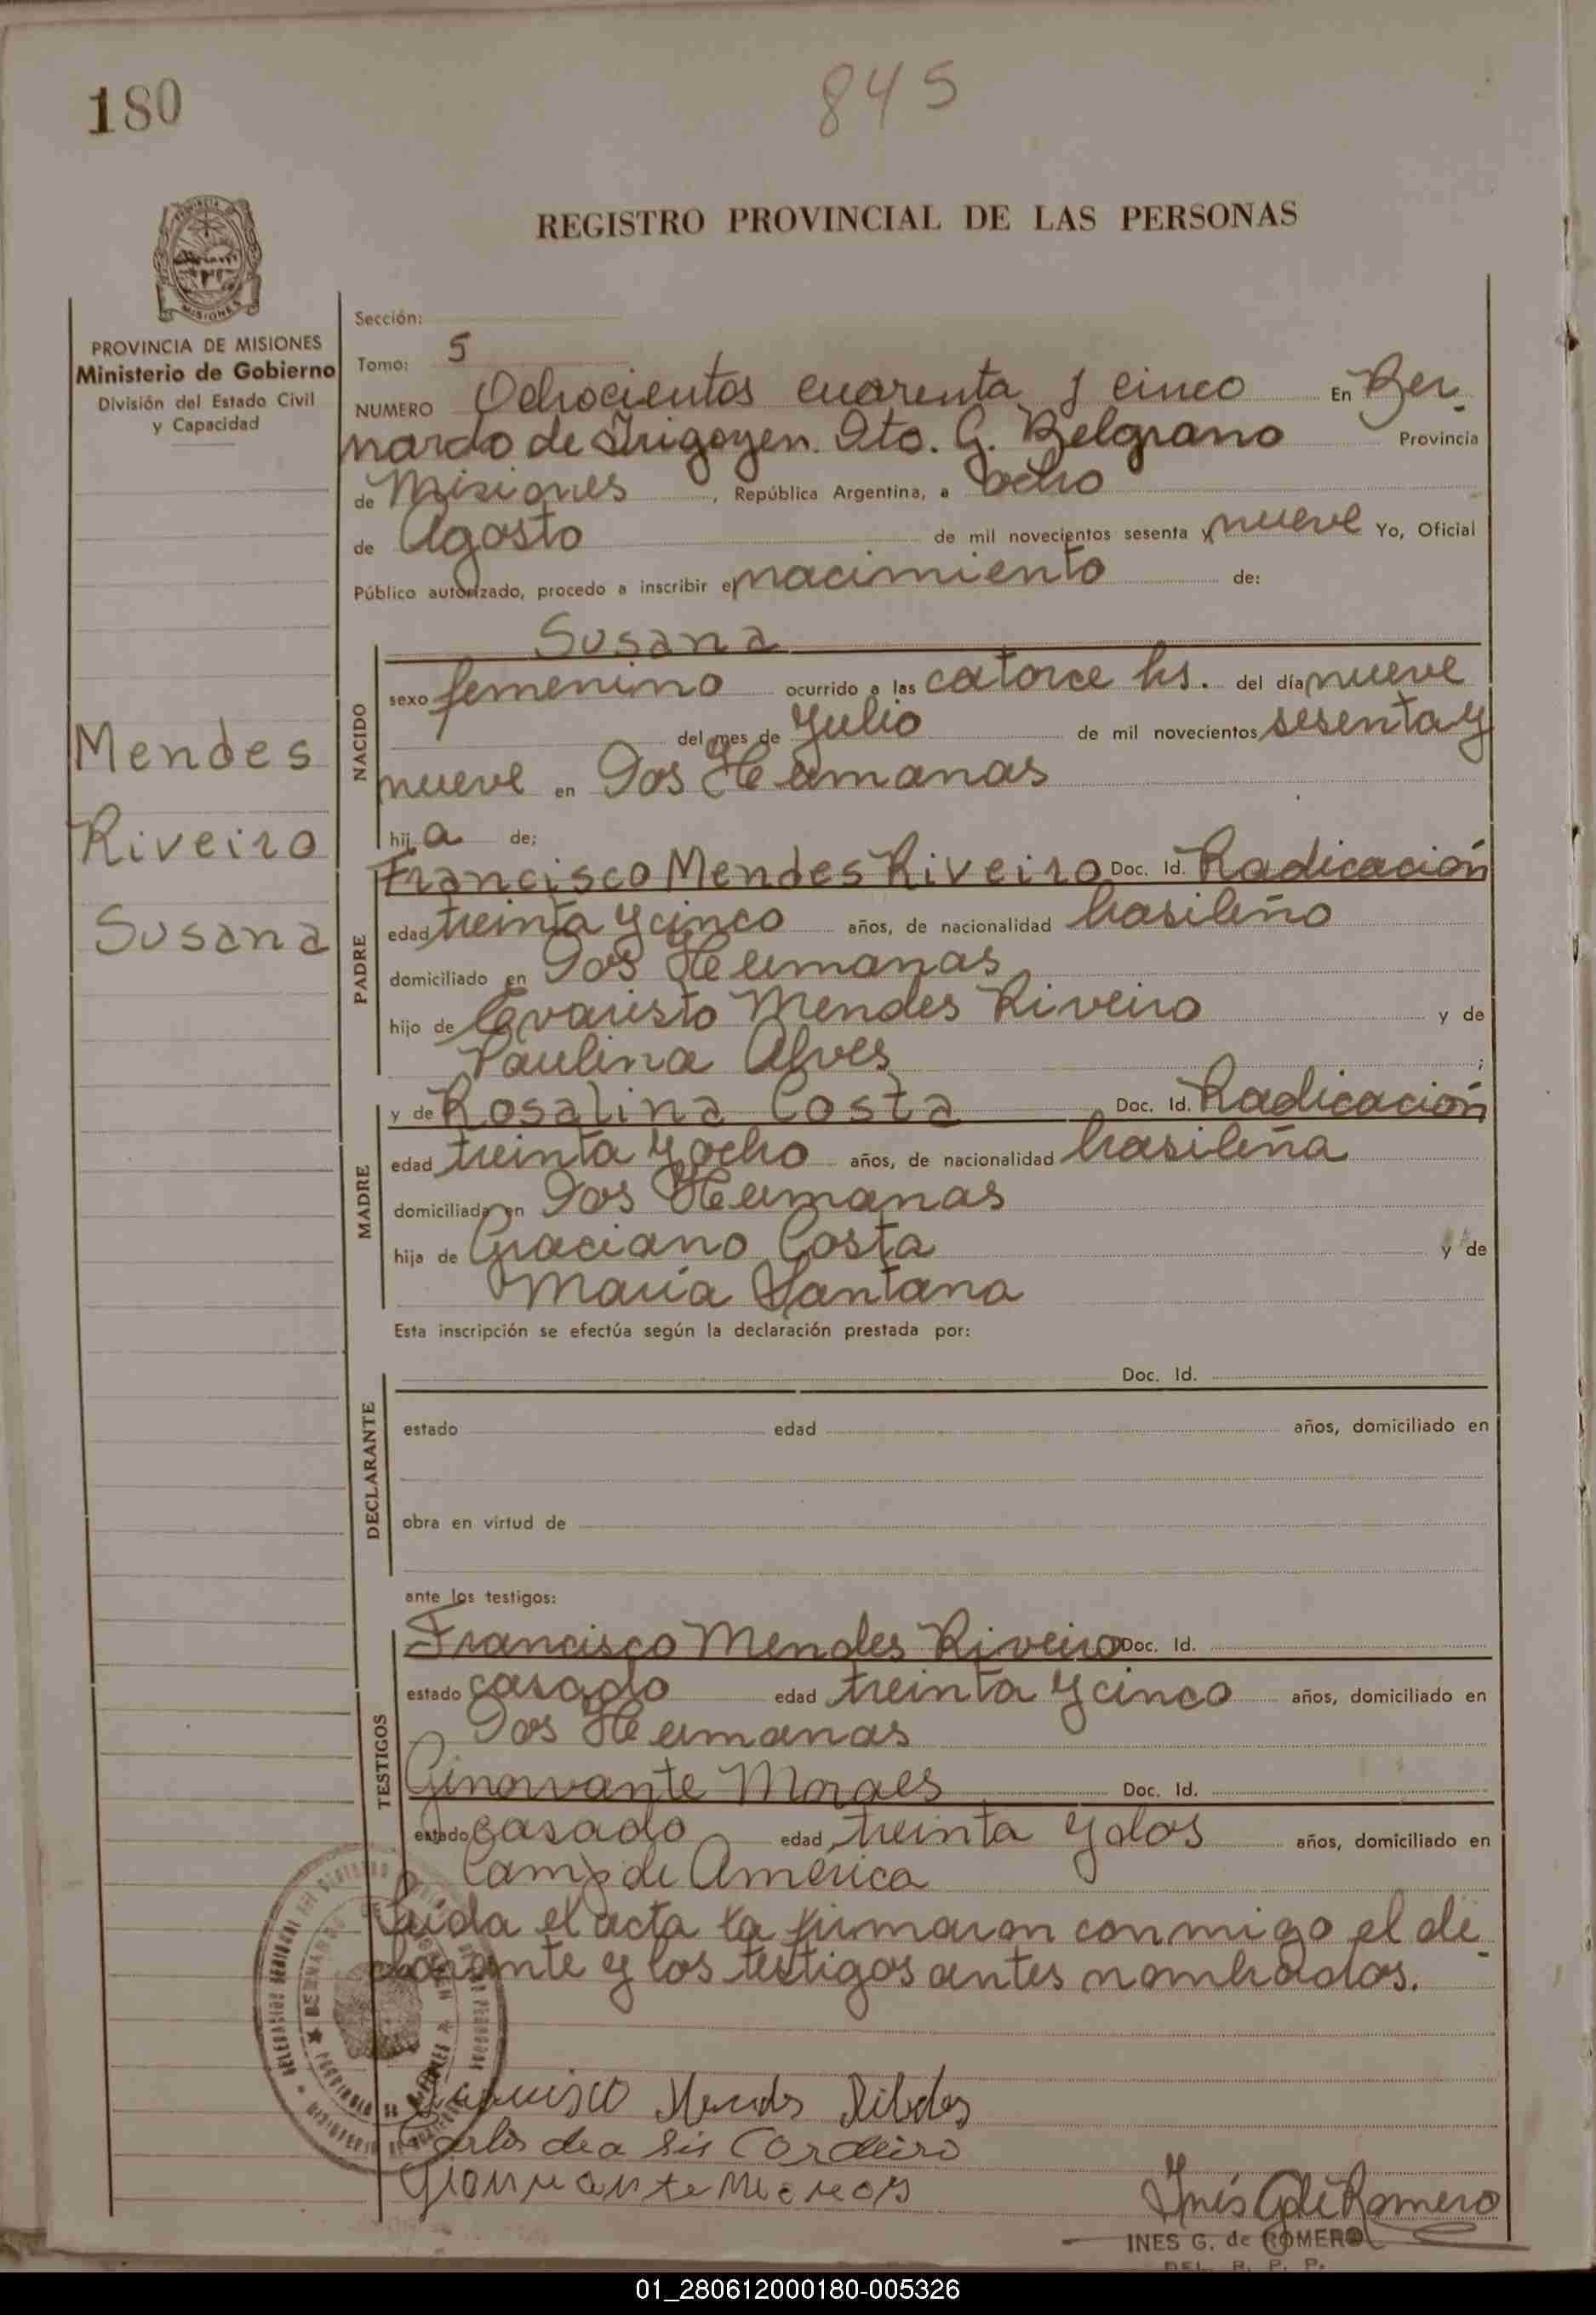 180
845
REGISTRO PROVINCIAL DE LAS PERSONAS
MISIONES
PROVINCIA DE MISIONES
Ministerio de Gobierno
División del Estado Civil
y Capacidad
Mendes
Riveiro
Susana
Sección:
Tomo: 5
NUMERO Ochocientos cuarenta y cinco En Ber-
nardo de Irigoyen. Dto. G. Belgrano Provincia
de Misiones, República Argentina, a ocho
de Agosto de mil novecientos sesenta y nueve Yo, Oficial
Público autorizado, procedo a inscribir el nacimiento de:
NACIDO
Susana
sexo femenino ocurrido a las catorce hs. del día nueve
del mes de Julio de mil novecientos sesenta y
nueve en Dos Hermanas
hija de:
PADRE
Francisco Mendes Riveiro Doc. Id. Radicación
edad treinta y cinco años, de nacionalidad brasileño
domiciliado en Dos Hermanas
hijo de Evaristo Mendes Riveiro y de
Paulina Alves ;
MADRE
y de Rosalina Costa Doc. Id. Radicación
edad treinta y ocho años, de nacionalidad brasileña
domiciliada en Dos Hermanas
hija de Graciano Costa y de
Maria Santana
Esta inscripción se efectúa según la declaración prestada por:
DECLARANTE
Doc. Id.
estado edad años, domiciliado en
obra en virtud de
ante los testigos:
TESTIGOS
Francisco Mendes Riveiro Doc. Id.
estado casado edad treinta y cinco años, domiciliado en
Dos Hermanas
Ginorvante Moraes Doc. Id.
estado casado edad treinta y dos años, domiciliado en
Camp de América
Leída el acta la firmaron conmigo el de-
clarante y los testigos antes nombrados.
Francisco Mendes
Carlos de a sis Cordeiro
Inés G de Romero
INES G. de ROMERO
DEL. R. P. P.
01_280612000180-005326